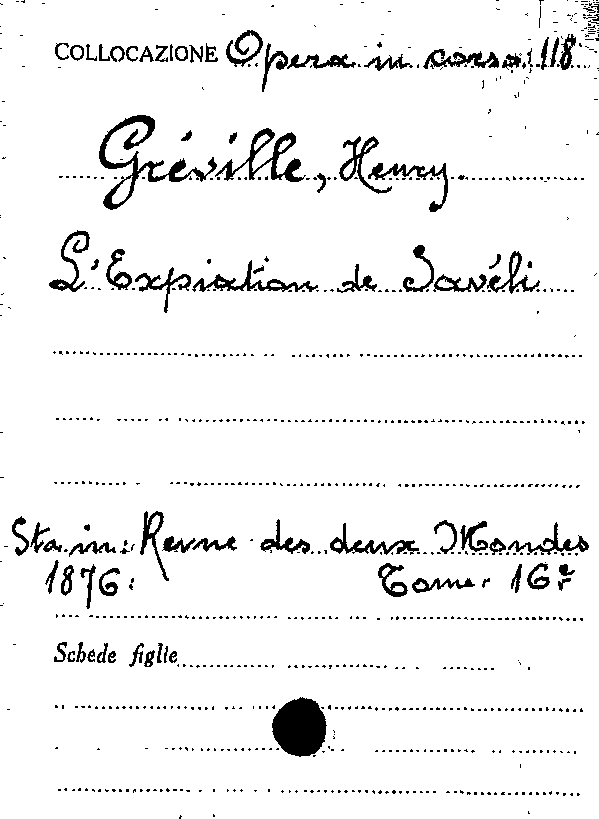 COLLOCAZIONE Opera in corso: 118
Gréville, Henry.
L'Expiation de Savéli
Sta in: Revue des deux Mondes
1876. Tome. 16e
Schede figlie